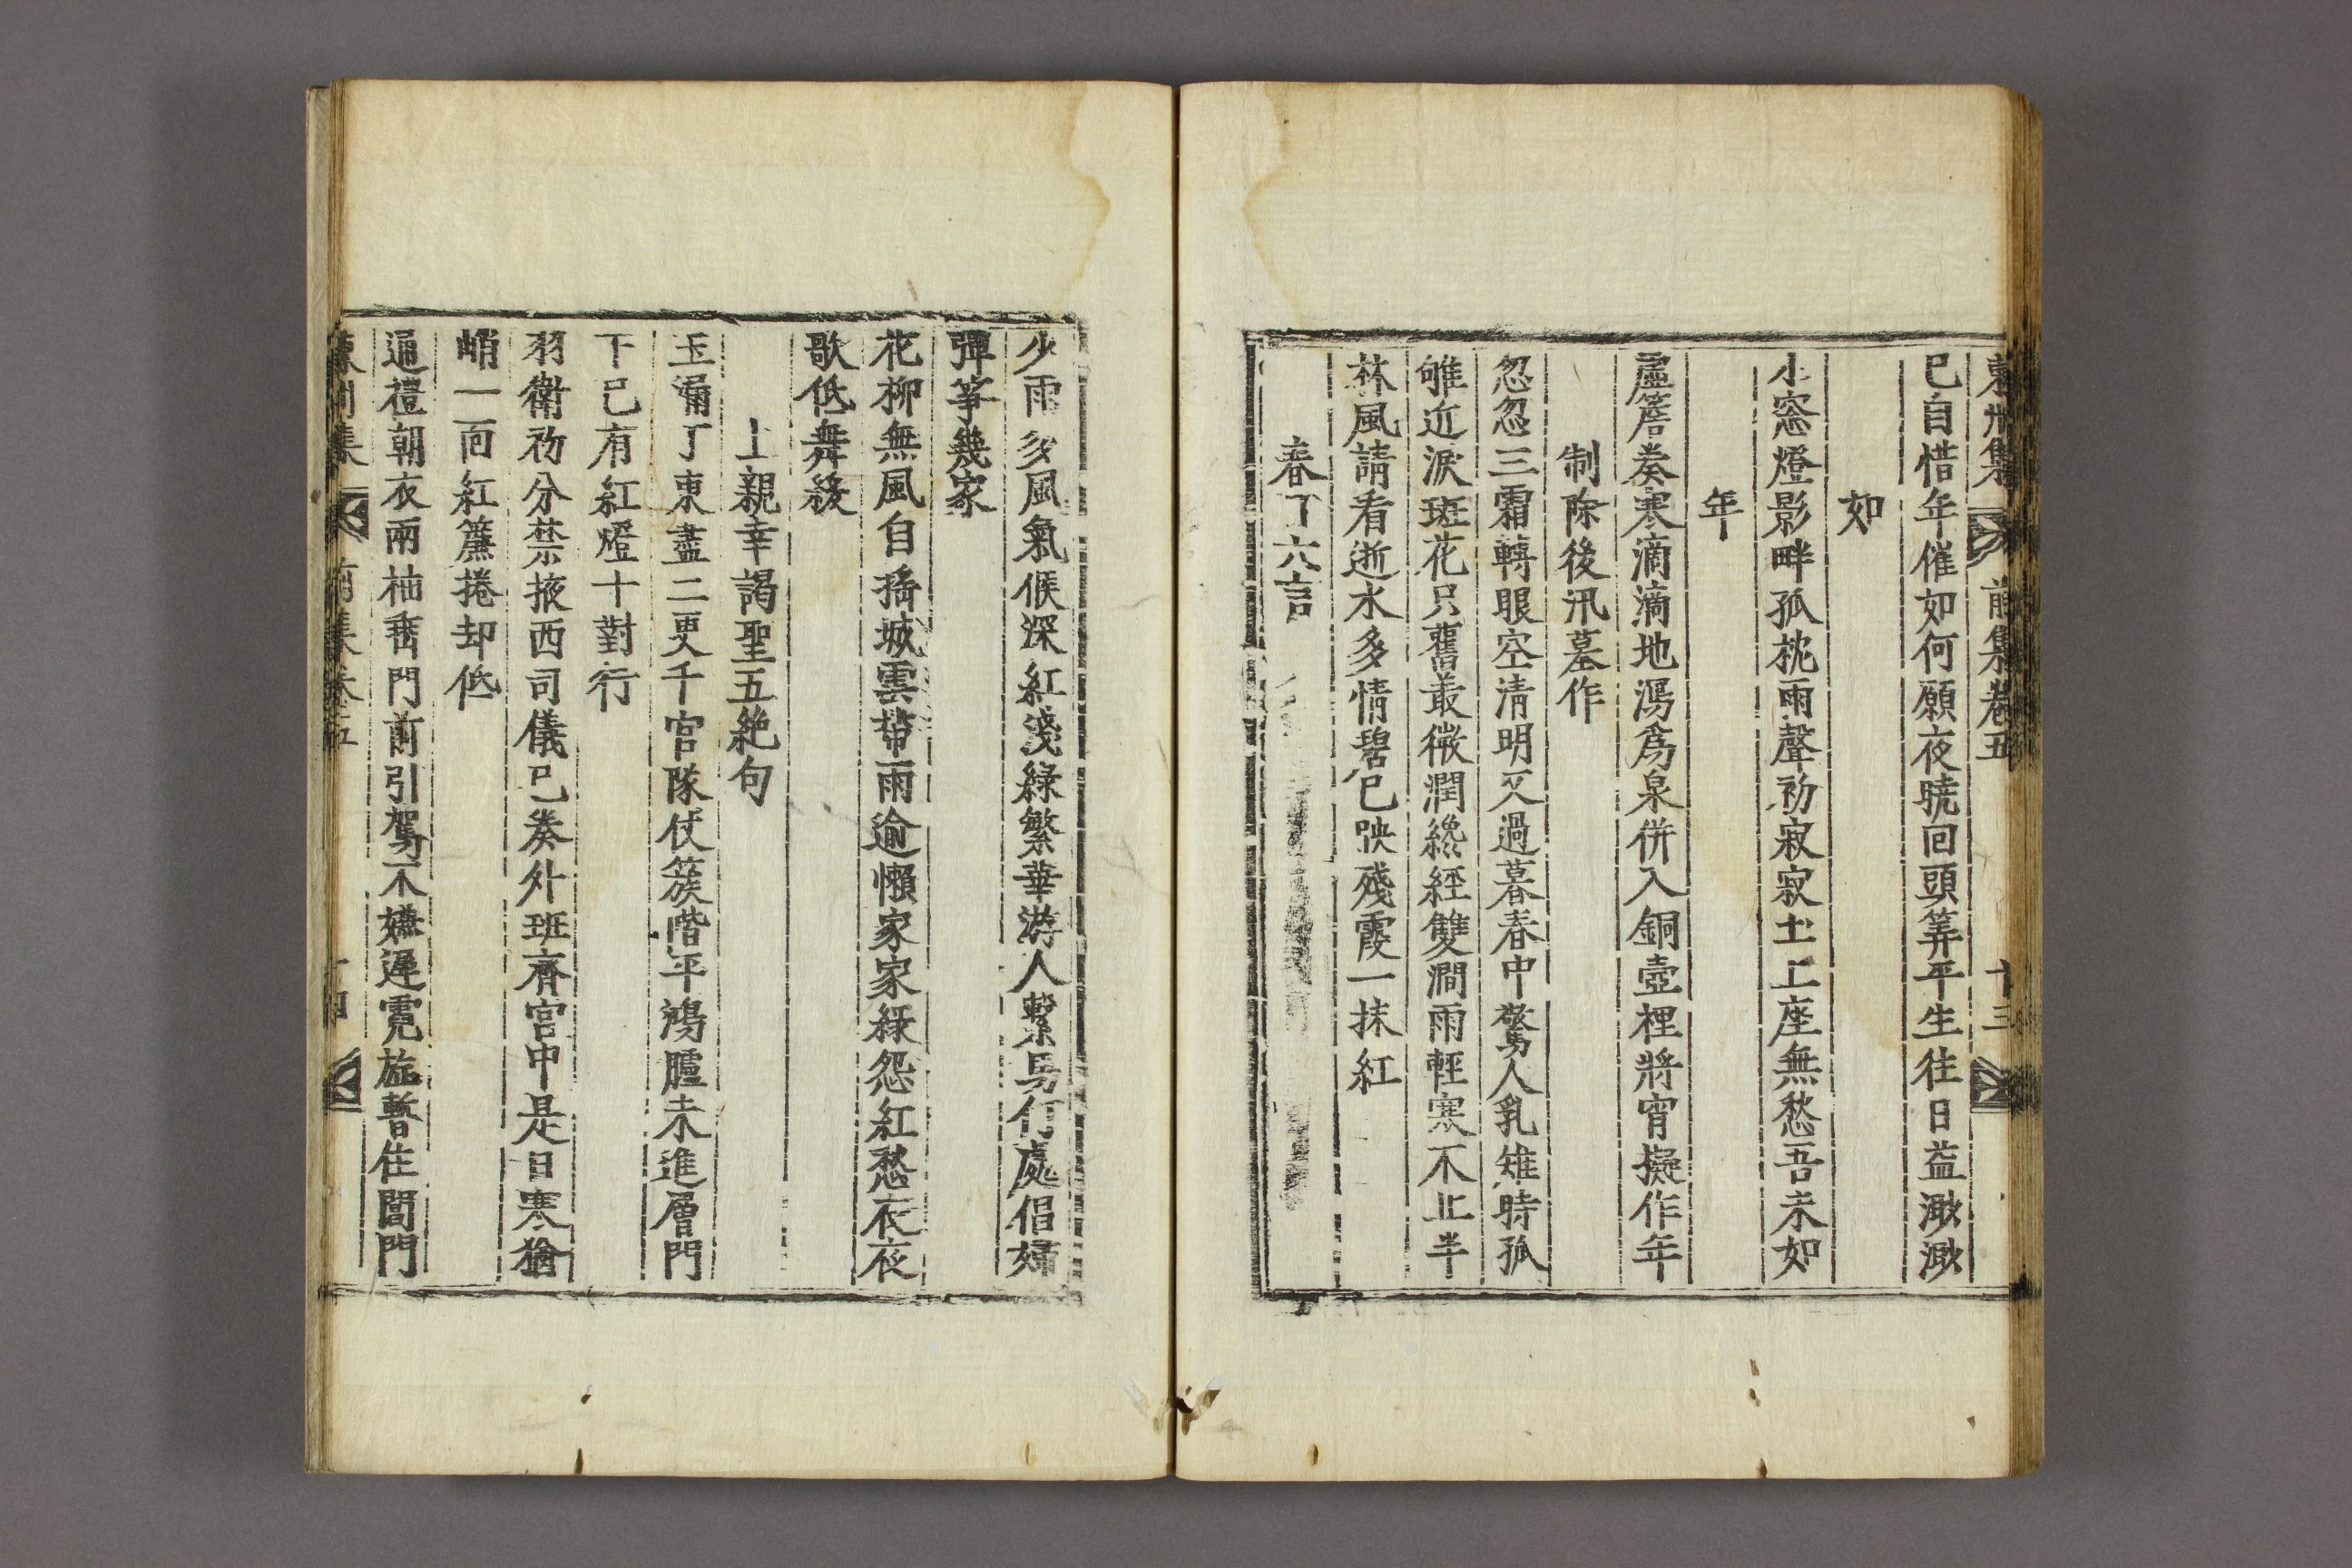 東州集 前集卷五 十三
已自惜年催如何願夜曉回頭筭平生往日益渺渺
如
小窓燈影畔孤枕雨聲初寂寂土上座無愁吾未如
年
虛簷奏寒滴滴地潟爲泉併入銅壺裡將宵擬作年
制除後汛墓作
忽忽三霜轉眼空淸明又過暮春中驚人乳雉時孤
雊近淚斑花只舊叢微潤纔經雙澗雨輕寒不止半
林風請看逝水多情碧已映殘霞一抹紅
春 六言
少雨多風氣候深紅淺綠繁華游人繫馬何處倡婦
彈筝幾家
花柳無風自搖城雲帶雨逾懶家家綠怨紅愁夜夜
歌低舞緩
上親幸謁聖五絶句
玉漏丁東盡二更千官隊仗簇階平鴻臚未進層門
下已有紅燈十對行
羽衛初分禁掖西司儀已奏外班齊宮中是日寒猶
峭一面紅簾捲却低
通禮朝衣兩柚垂門前引駕不嫌遲霓旌暫住閶門
東州集 前集卷五 十四